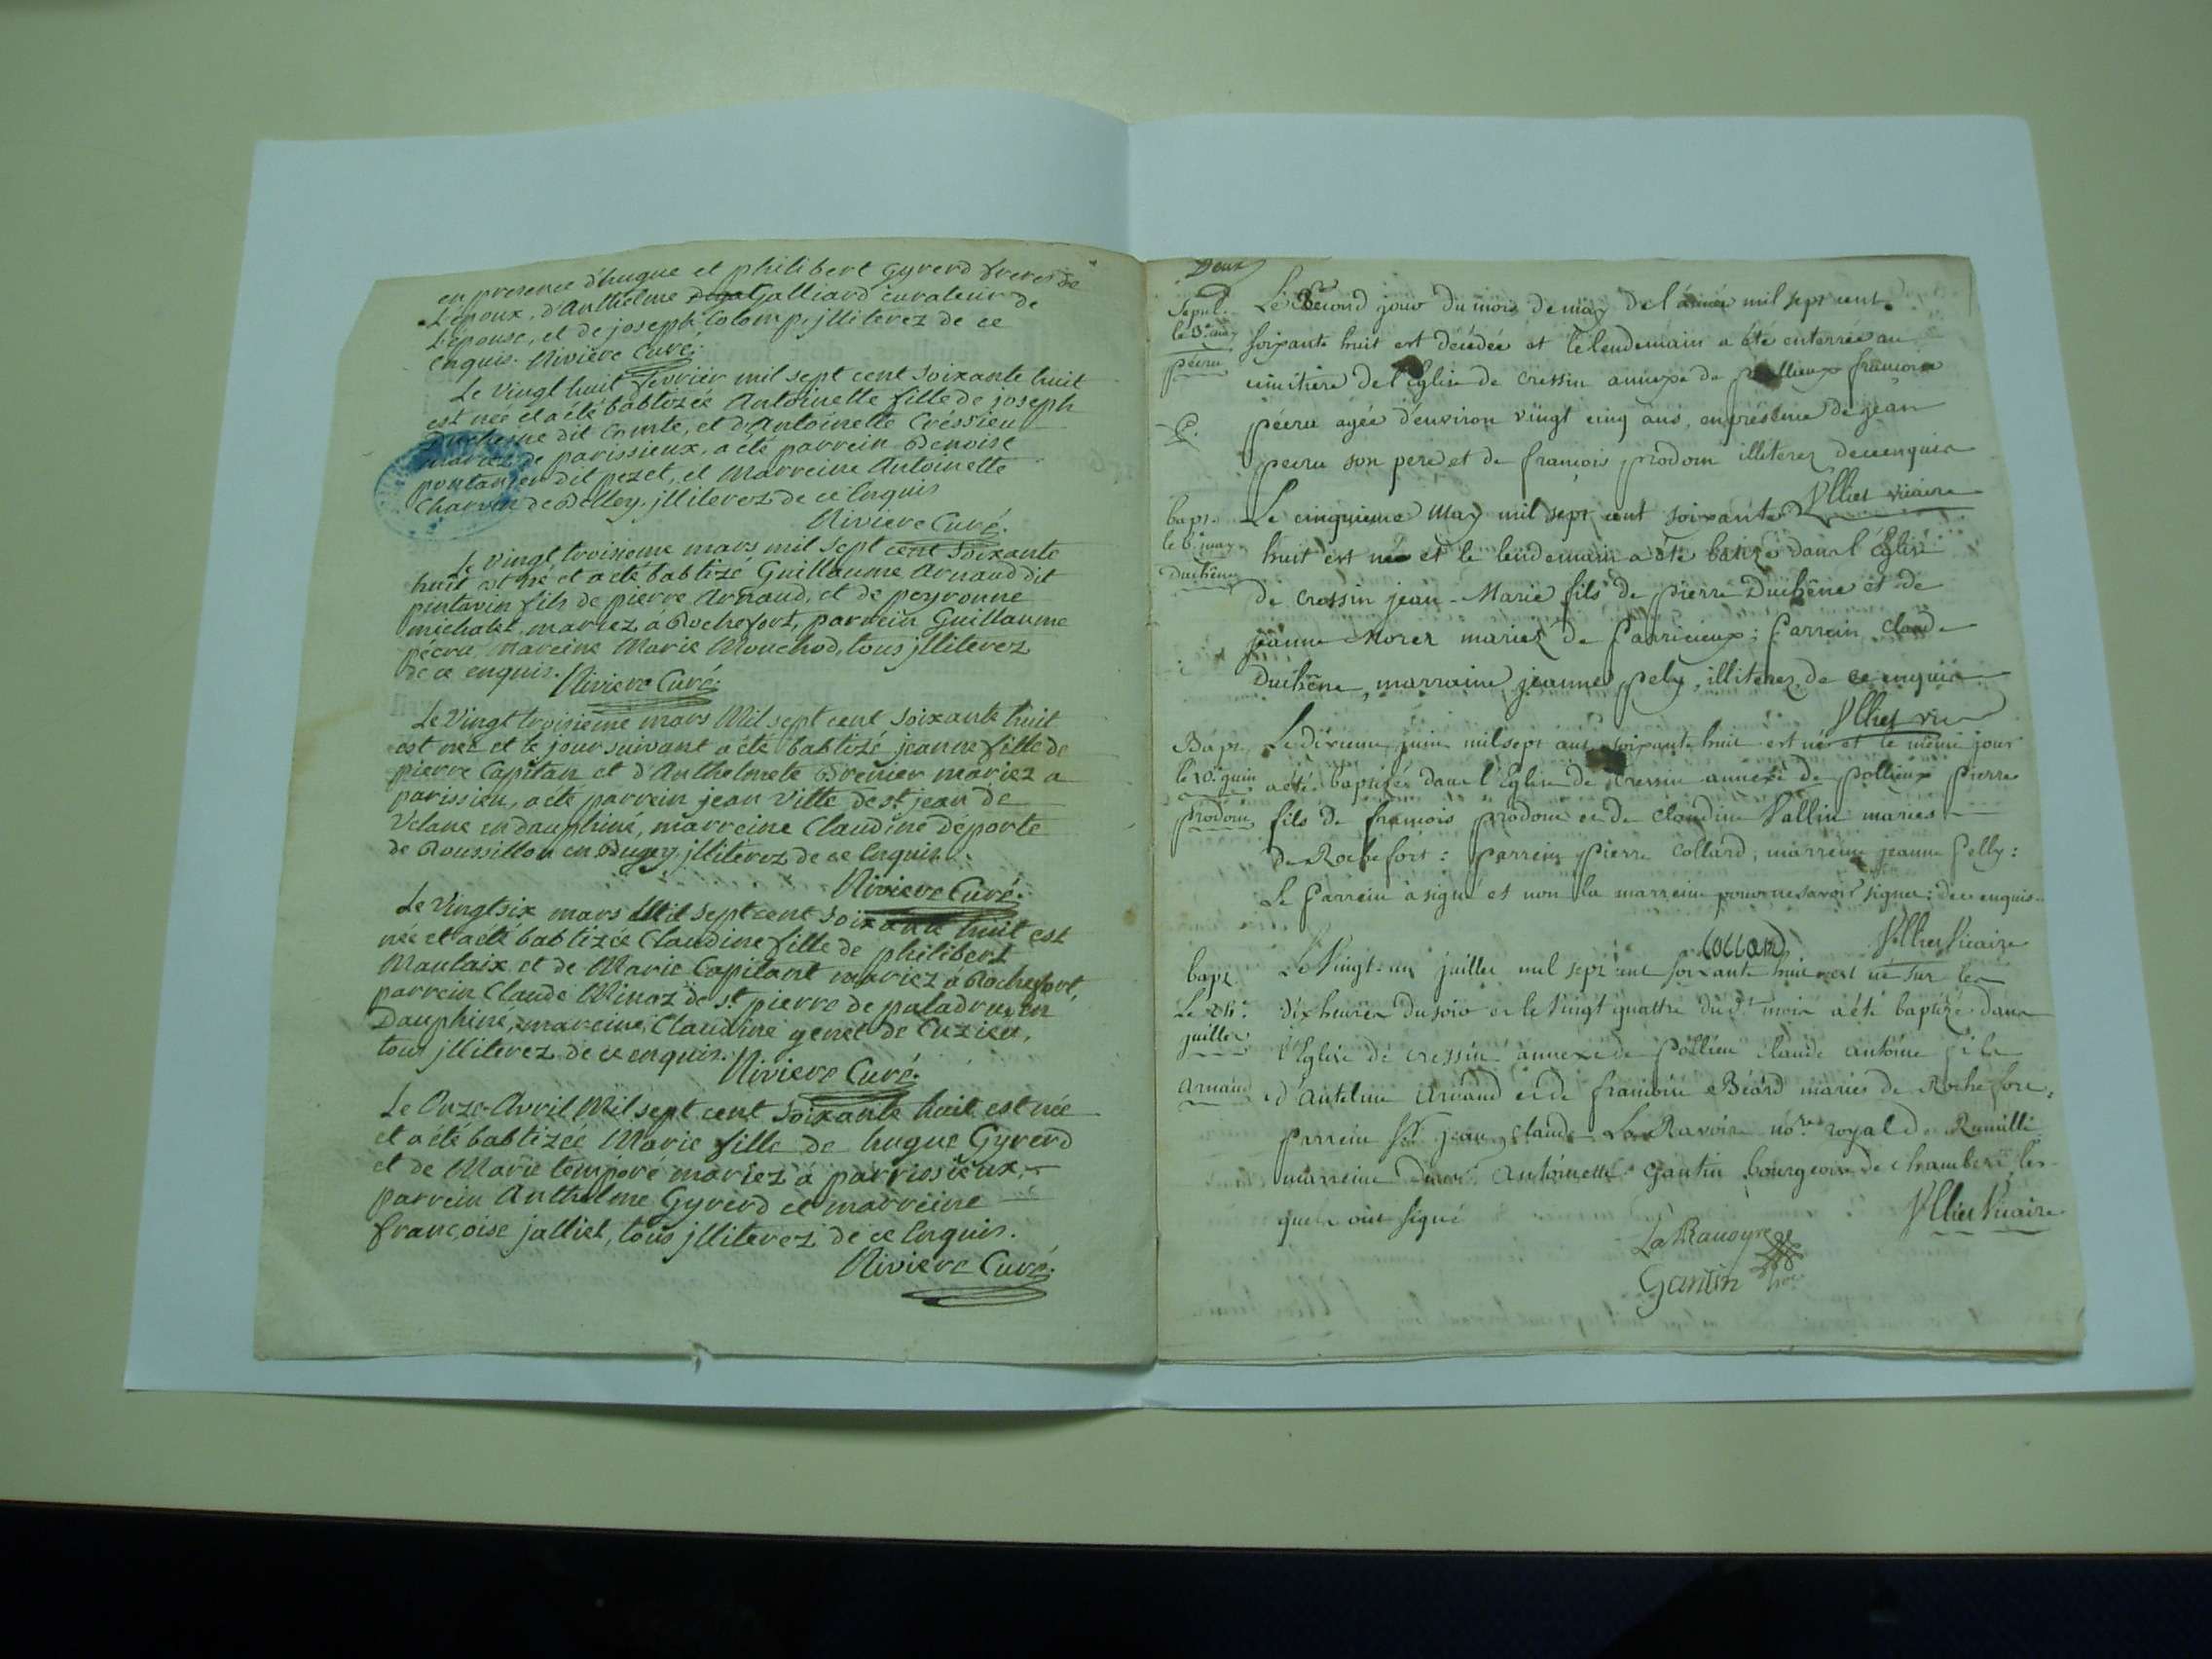 en presence d'hugue et philibert Gyrerd freres de
L'epoux, d'Anthelme Galliard curateur de
L'epouse, et de joseph Colomp, jlliterez de ce
Enquis. Riviere Curé.
Le vingt huit fevrier mil sept cent soixante huit
est née et a été babtizée Antoinette fille de joseph
Duchesne dit Comte, et d'Antoinette Cressieu
mariez de parissieux, a été parrein Benoist
dit pezet, et Marreine Antoinette
de Belley. jlliterez de ce Enquis
Riviere Curé.
Le vingt troisieme mars mil sept cent soixante
huit est né et a été babtizé Guillaume Arnaud dit
pintavin fils de pierre Arnaud, et de peyronne
michalet mariez a Rochefort, parrein Guillaume
pécru, mareine Marie Mouchod, tous jlliterez
de ce enquis. Riviere Curé.
Le Vingt troisieme mars Mil sept cent soixante huit
est née et le jour suivant a été babtizé jeanne fille de
pierre Capitan et d'Anthelmete Brenier mariez a
parissieu, a été parrein jean Ville de st. jean de
Velane en dauphiné, marreine Claudine Déporte
de Roussillon en Bugey jlliterez de ce Enquis.
Riviere Curé.
Le Vingtsix mars Mil sept cent soixante huit est
née et a été babtizée Claudine fille de philibert
Maulaix et de Marie Capitant mariez á Rochefort,
parrein Claude Minoz de st. pierre de paladru en
Dauphiné, mareine Claudine genet de Cuzieu,
tous jlliterez de ce enquis. Riviere Curé.
Le Onze Avril Mil sept cent soixante huit est née
et a été babtizée Marie fille de hugue Gyrerd
et de Marie temporé mariez á parrissieux.
parrein Anthelme Gyrerd et marreine
françoise jalliet, tous jlliterez de ce Enquis.
Riviere Curé.
Deux
Sepul.
le 3e may
pécru
Le Second jour du mois de may de l'année mil sept cent
soixante huit est décédée et le lendemain a été enterrée au
cimitière de l'Eglise de cressin annexe de pollieux françoise
pécru agée d'environ vingt cinq ans, en présence de jean
pecru son pere et de françois prodom illiterez de ce enquis
Ulliet vicaire
bapt.
le 6 may
Duchêne
Le cinquieme May mil sept cent soixante
huit est né et le lendemain a été batizé dans l'Eglise
de cressin jean-Marie fils de pierre Duchêne et de
jeanne Morer mariez de Parricieux; Parrein claude
Duchêne, marraine jeanne pely, illiterez de ce enquis
Ulliet vic
Bapt.
le 10. juin
prodom
Le dixieme juin mil sept cent soixante huit est né et le même jour
a été baptizé dans l'Eglise de Cressin annexe de pollieux pierre
fils de françois prodom et de claudine Vallin maries
de Rochefort: parrein pierre Collard, marreine jeanne Pelly:
Le Parrein a signé et non la marreine pour ne savoir signer: de ce enquis
Collard
Ulliet Vicaire
bapt.
Le 24e
juillet
Arnaud
Le Vingt-un juillet mil sept cent soixante huit est né sur les
dix heures du soir et le Vingt quattre du dt mois a été baptizé dans
l'Eglise de cressin annexe de Pollieu claude antoine fils
d'Antelme Arnaud et de françoise Béard maries de Rochefort,
parrein Sr jean claude La Ravoire nore royal de Rumilli
marreine Antoinette Gantin bourgeoise de chamberi les-
quels ont signé
Ulliet Vicaire
La Ravoyre
Gantin